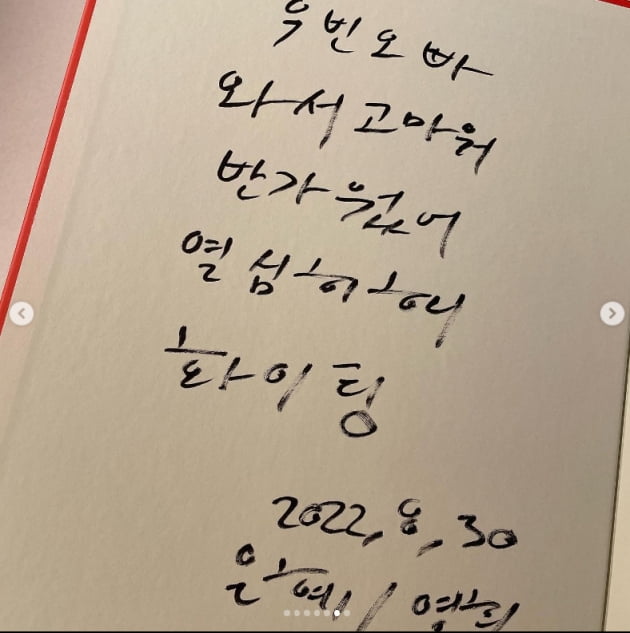 우빈오빠
와서고마워
반가웠어
열심히해
화이팅
2022, 8, 30
은혜/영희